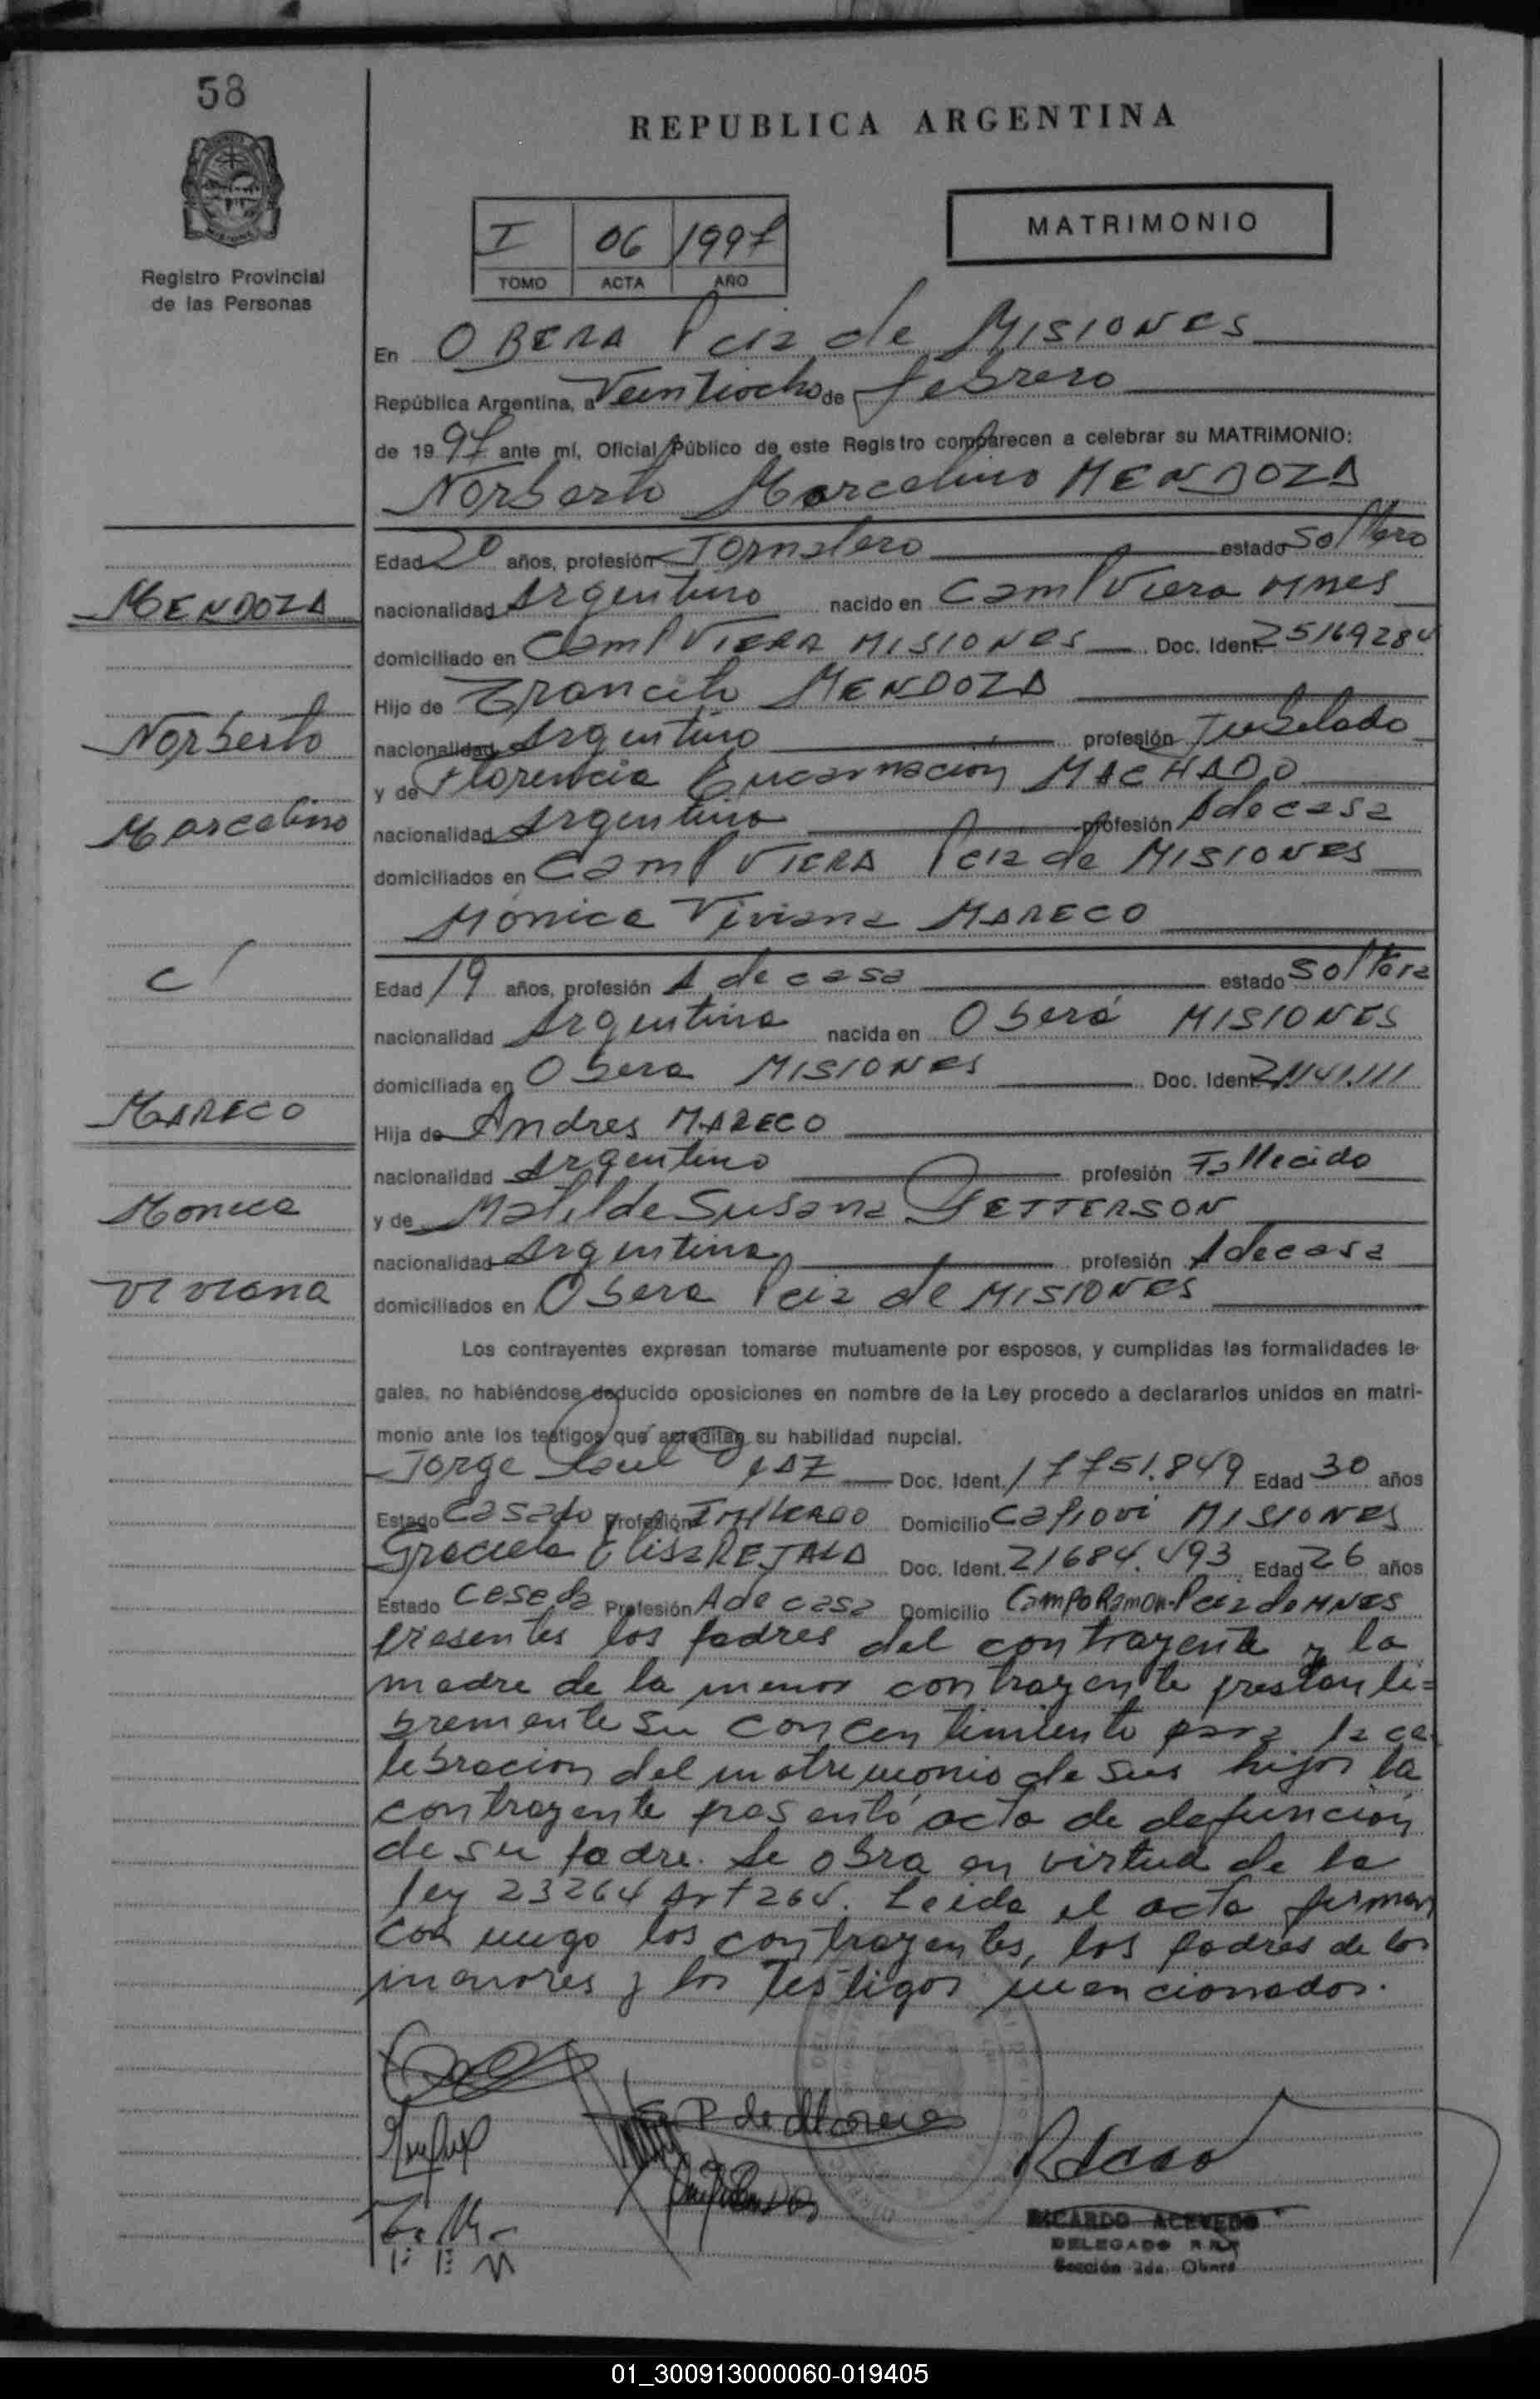 58
REPUBLICA ARGENTINA
MATRIMONIO
I 06 1997
TOMO ACTA AÑO
Registro Provincial
de las Personas
En OBERA Pcia de MISIONES
República Argentina, a Veintiocho de febrero
de 1997 ante mí, Oficial Público de este Registro comparecen a celebrar su MATRIMONIO:
Norberto Marcelino MENDOZA
Edad 20 años, profesión Jornalero estado Soltero
MENDOZA
nacionalidad Argentino nacido en Camp Viera Mnes
domiciliado en Camp VIERA MISIONES Doc. Ident. 25169284
Hijo de MENDOZA
Norberto
nacionalidad Argentino profesión Jubilado
y de Florencia Encarnacion MACHADO
Marcelino
nacionalidad Argentina profesión A de casa
domiciliados en Camp VIERA Pcia de MISIONES
Mónica Viviana MARECO
c/
Edad 19 años, profesión A de casa estado Soltera
nacionalidad Argentina nacida en Oberá MISIONES
domiciliada en Obera MISIONES Doc. Ident.
MARECO
Hija de Andres MARECO
nacionalidad Argentino profesión Fallecido
Monica
y de Matilde Susana PETTERSON
nacionalidad Argentina profesión A de casa
Viviana
domiciliados en Obera Pcia de MISIONES
Los contrayentes expresan tomarse mutuamente por esposos, y cumplidas las formalidades le-
gales, no habiéndose deducido oposiciones en nombre de la Ley procedo a declararlos unidos en matri-
monio ante los testigos que acreditan su habilidad nupcial.
Jorge Raul Doc. Ident. 17751.849 Edad 30 años
Estado Casado Profesión Domicilio Capiovi MISIONES
Graciela Elisa REJALA Doc. Ident. 21684.493 Edad 26 años
Estado Casada Profesión A de casa Domicilio Campo Ramon-Pcia de MNES
presentes los padres del contrayente y la
madre de la menor contrayente prestan li=
bremente su concentimiento para la ce
lebracion del matrimonio de sus hijos la
contrayente presentó acta de defuncion
de su padre. Se obra en virtud de la
ley 23264 Art 264. Leida el acta firman
con migo los contrayentes, los padres de los
menores y los Testigos mencionados.
RICARDO ACEVEDO
DELEGADO
Sección 2da. Oberá
01_300913000060-019405